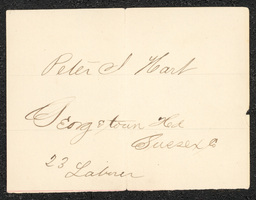 Peter S Hart
Georgetown Hd
Sussex Co
23
Laborer